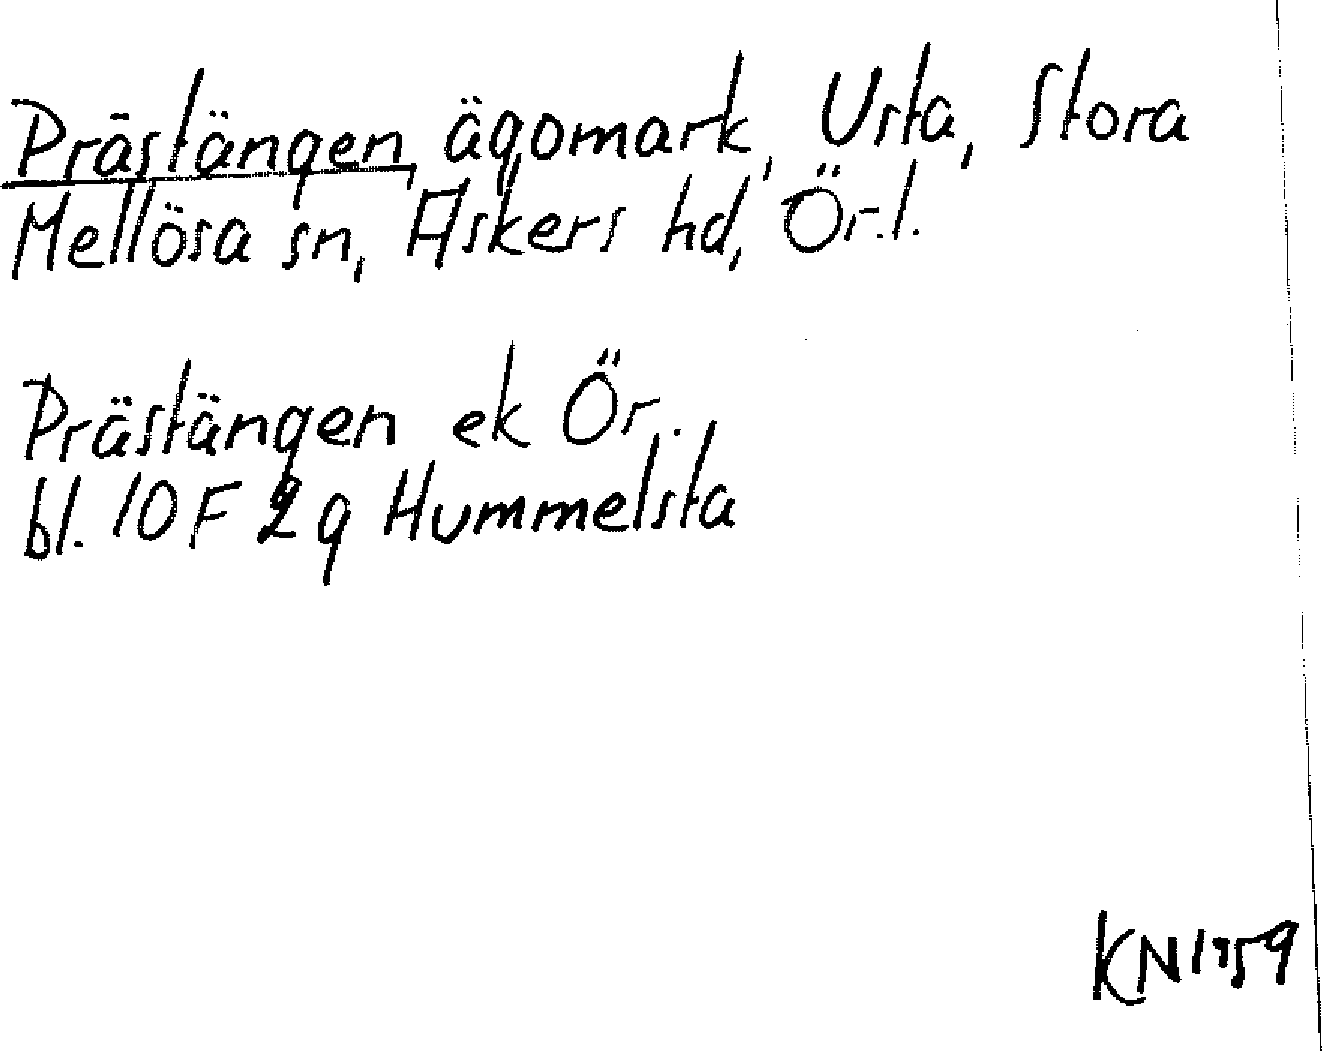 Prästängen, ägomark, Usta, Stora
Mellösa sn, Askers hd, Ör.l.
Prästängen ek Ör.
bl. 10 F 2 g Hummelsta
KN 1959